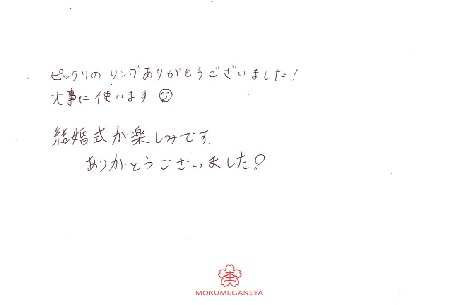 ピッタリのリングありがとうございました!
大事に使います☺
結婚式が楽しみです。
ありがとうございました!
杢
MOKUMEGANEYA